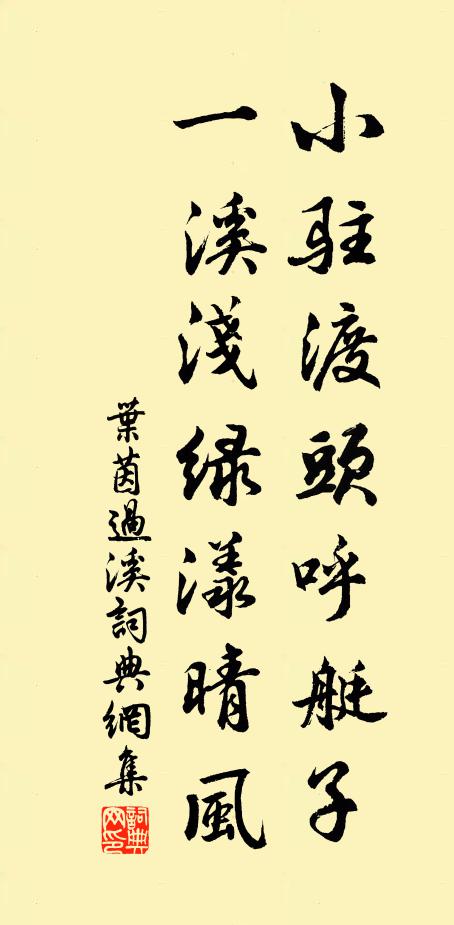 小駐渡頭呼艇子
一溪淺綠漾晴風
葉茵過溪詞典網集
詞典網印